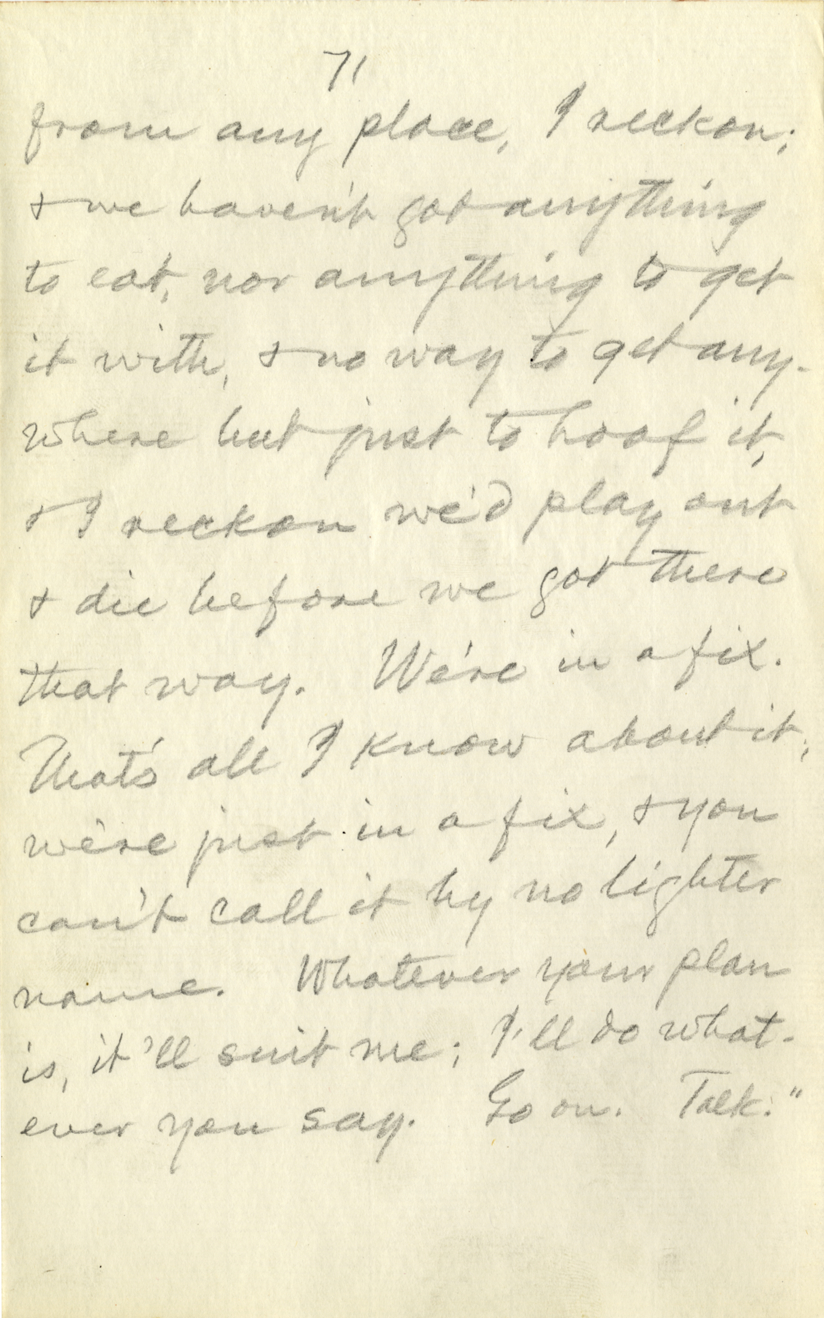 71
from any place, I reckon;
& we haven't got anything
to eat, nor anything to get
it with, & no way to get any-
where but just to hoof it,
& I reckon we'd play out
& die before we got there
that way. We're in a fix.
That's all I know about it;
we're just in a fix, & you
can't call it by no lighter
name. Whatever your plan
is, it'll suit me; I'll do what-
ever you say. Go on. Talk."